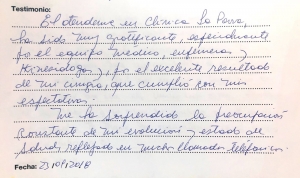 Testimonio:
El atenderme en Clínica La Parva
ha sido muy gratificante, especialmente
por el equipo médico, enfermeras y
Kinesiólogos, por el excelente resultado
de mi cirugía, que cumplió con mis
expectativas.
Me ha sorprendido la preocupación
constante de mi evolución y estado de
salud, reflejado en mucho llamados telefónicos.
Fecha: 23/09/2018